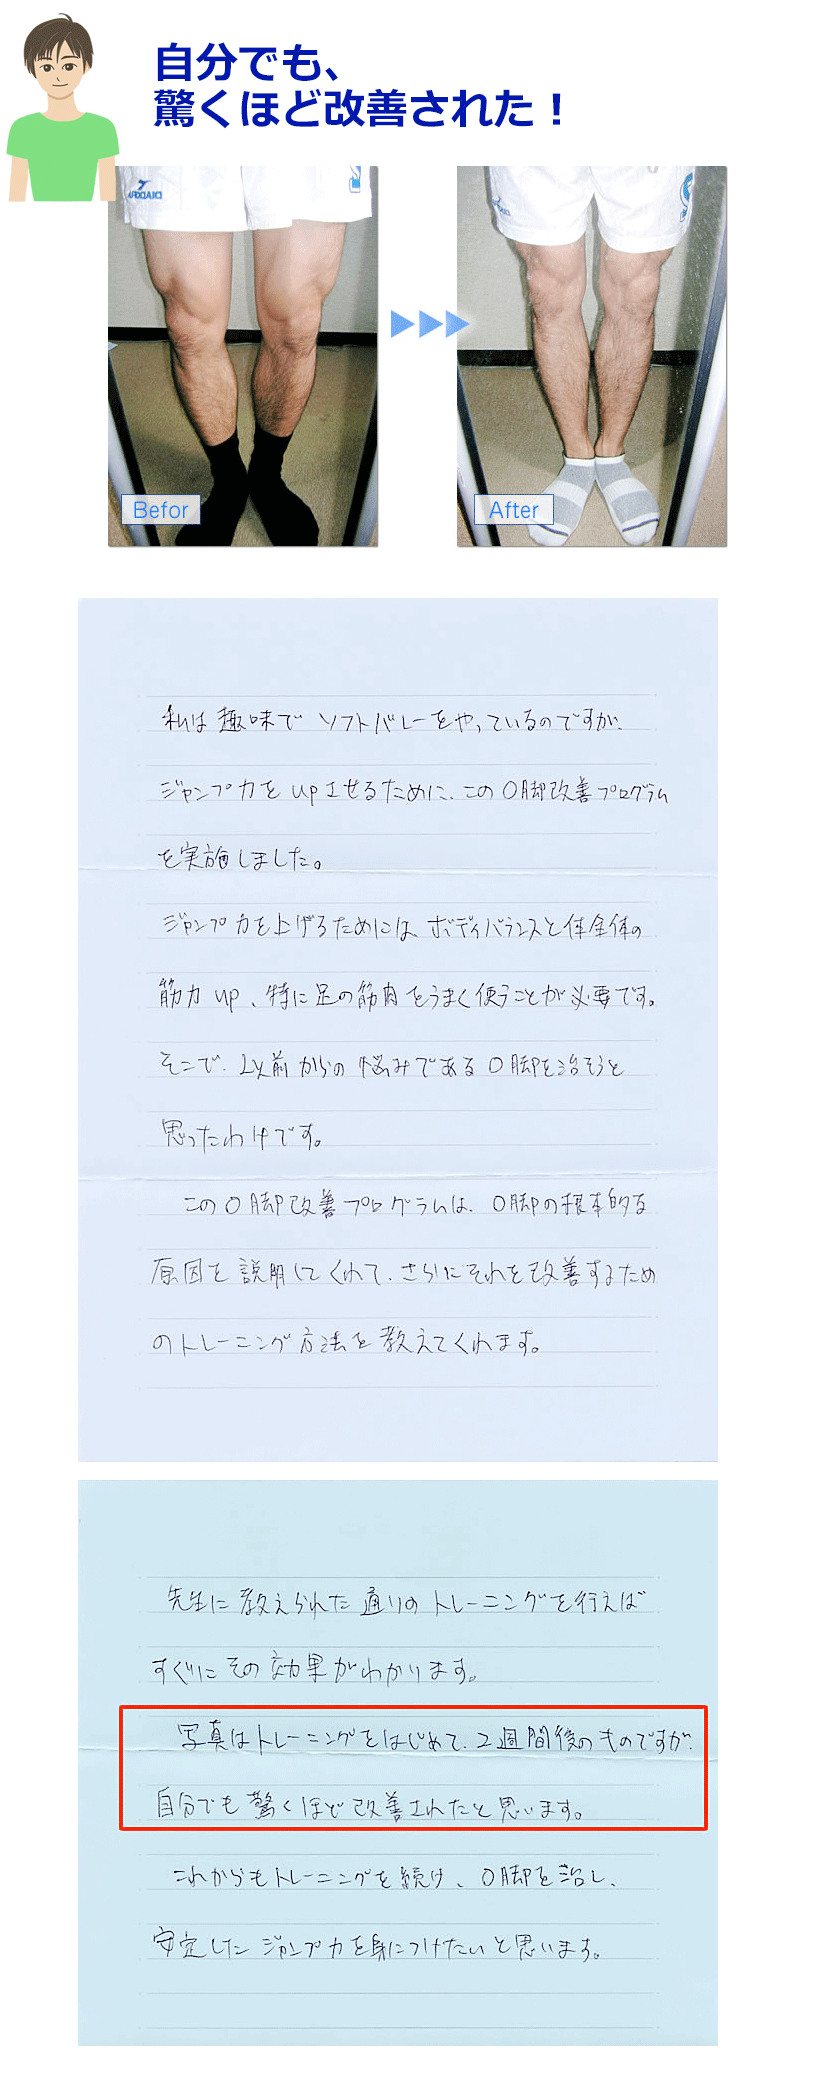 自分でも、
驚くほど改善された！
DIADORA
Befor
After
私は趣味でソフトバレーをやっているのですが、
ジャンプ力をupさせるために、このO脚改善プログラム
を実施しました。
ジャンプ力を上げるためには、ボディバランスと体全体の
筋力up、特に足の筋肉をうまく使うことが必要です。
そこで、以前からの悩みであるO脚を治そうと
思ったわけです。
このO脚改善プログラムは、O脚の根本的な
原因を説明してくれて、さらにそれを改善するため
のトレーニング方法を教えてくれます。
先生に教えられた通りのトレーニングを行えば
すぐにその効果がわかります。
写真はトレーニングをはじめて、2週間後のものですが、
自分でも驚くほど改善されたと思います。
これからもトレーニングを続け、O脚を治し、
安定したジャンプ力を身につけたいと思います。